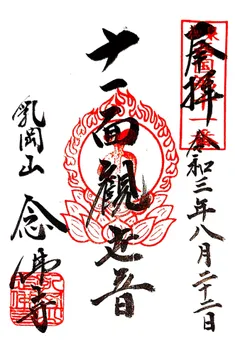 奉拝
令和三年八月二十二日
十一面観世音
乳岡山 念佛寺